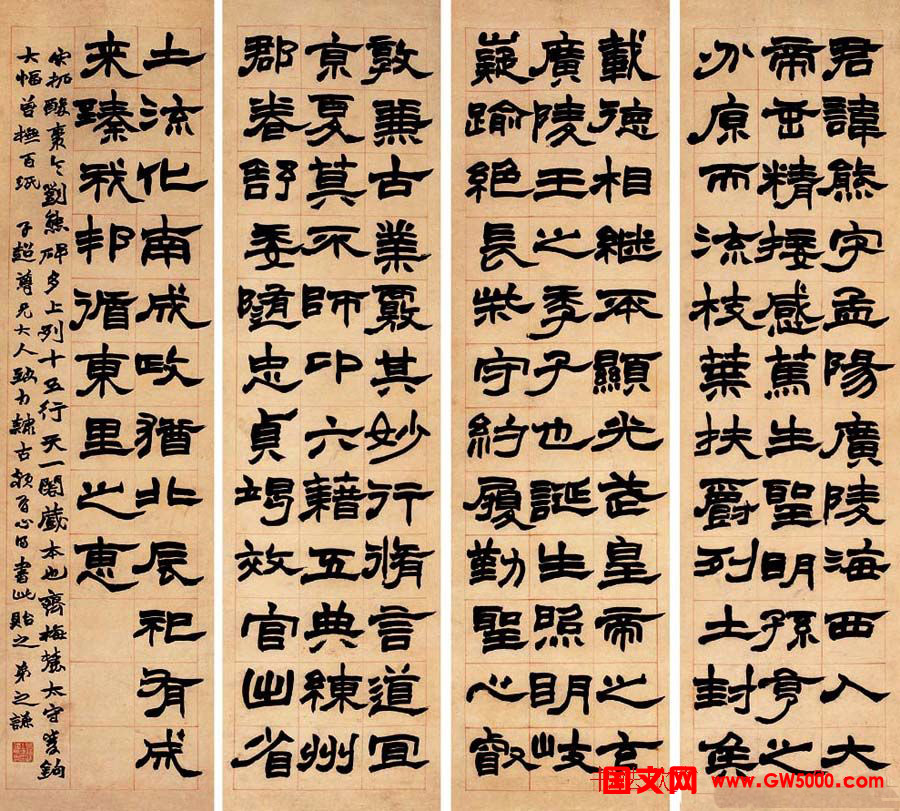 君諱熊字孟陽廣陵海西人大
帝垂精接感篤生聖明孫亨之
分原而流枝葉扶爵列土封矦
載德相継丕顯光武皇帝之玄
廣陵王之季子也誕生照明岐
嶷踰絕長柴守約履勤聖心叡
敦兼古業覈其妙行脩言道宜
京夏莫不師卬六籍五典練州
郡卷舒委隨忠貞竭效官㞢省
土流化南成政猶北辰祀有成
来臻我邦循東里之惠
宋拓酸棗令劉熊碑多上列十五行天一閣藏本也齊梅麓太守雙鉤
大幅曾橅百紙 子超尊兄大人致力隸古頗有心得書此貽之弟之謙
国文网 www.GW5000.com